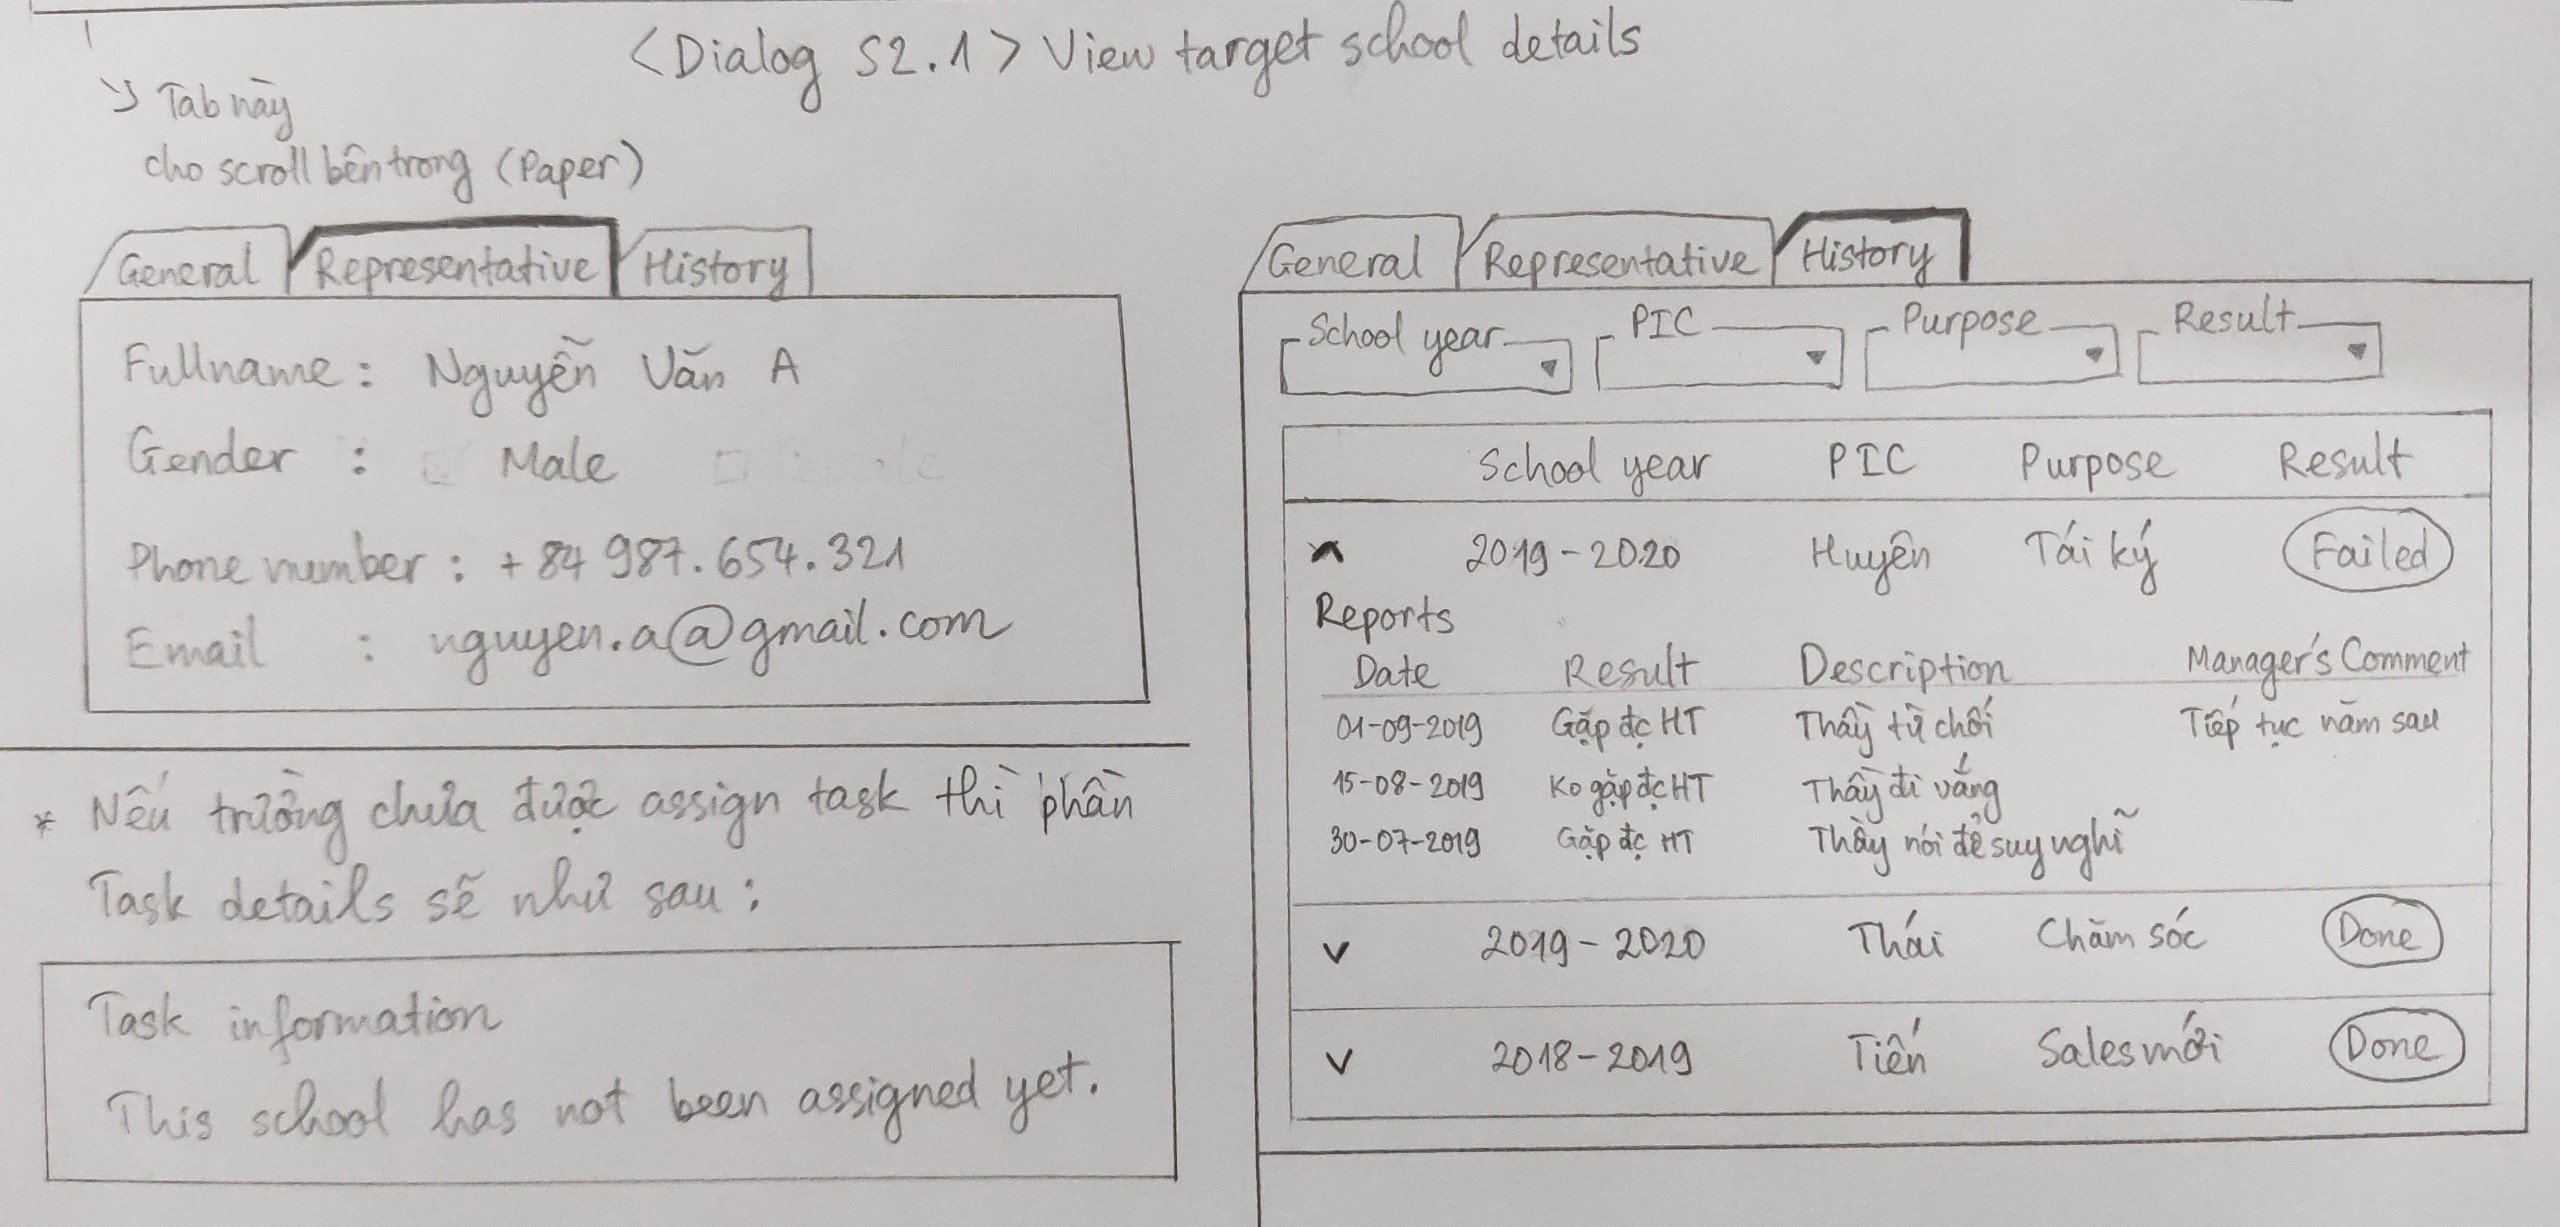 <Dialog S2.1> View target school details
Tab này
cho scroll bên trong (Paper)
General Representative History
Fullname : Nguyễn Văn A
Gender : Male
Phone number : +84 987.654.321
Email : nguyen.a@gmail.com
* Nếu trường chưa được assign task thì phần
Task details sẽ như sau :
Task information
This school has not been assigned yet.
General Representative History
School year PIC Purpose Result
School year PIC Purpose Result
2019-2020 Huyên Tái ký Failed
Reports
Date Result Description Manager's Comment
01-09-2019 Gặp đc HT Thầy từ chối Tiếp tục năm sau
15-08-2019 Ko gặp đc HT Thầy đi vắng
30-07-2019 Gặp đc HT Thầy nói để suy nghĩ
v 2019-2020 Thái Chăm sóc Done
v 2018-2019 Tiến Sales mới Done